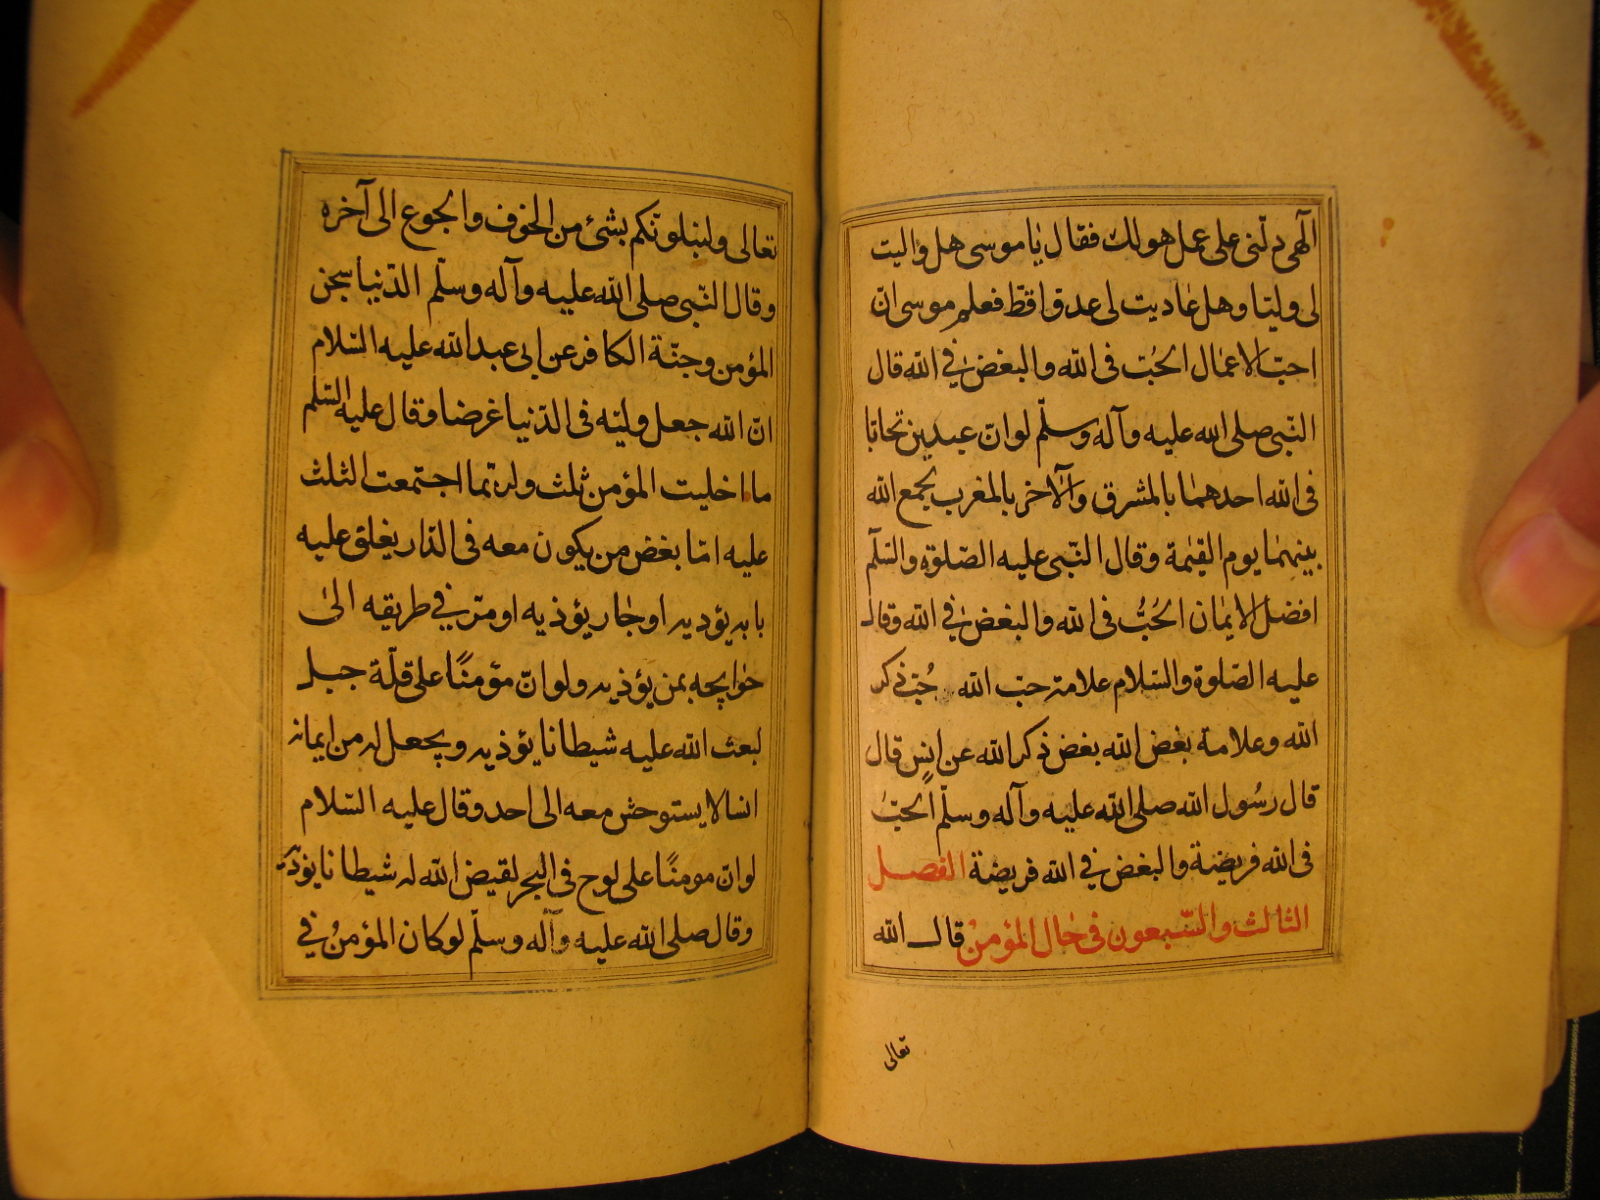 الٓهى دلّنى على عمل هو لك فقال يا موسى هل واليت
لى وليّا وهل عاديت لى عدوّا قطّ فعلم موسى انّ
احبّ الاعمال الحُبّ فى الله والبغض فى الله قال
النّبى صلى الله عليه وآله وسلّم لو انّ عبدين تحابّا
فى الله احدهما بالمشرق والآخر بالمغرب يجمع الله
بينهما يوم القيٰمة وقال النّبى عليه الصّلوة والسّلٰم
افضل الايمان الحُبُّ فى الله والبغض فى الله وقال
عليه الصّلوة والسّلام علامة حبّ الله حُبّ ذكر
الله وعلامة بغض الله بغض ذكر الله عن انسٍ قال
قال رسُول الله صلى الله عليه وآله وسلّم الحبّ
فى الله فريضة والبغض فى الله فريضة الفصل
الثالث والسّبعون فى حال المؤمن قال الله
تعالى
تعالى ولنبلونّكم بشئ من الخوف والجوع الى آخره
وقال النّبى صلى الله عليه وآله وسلّم الدّنيا سجن
المؤمن وجنّة الكافر عن ابى عبد الله عليه السّلام
انّ الله جعل وليّه فى الدّنيا غرضا وقال عليه السّلم
ما اخليت المؤمن ثلث ولربّما اجتمعت الثلث
عليه امّا بغض من يكون معه فى الدّار يغلق عليه
بابه يؤديه او جار يؤذيه او من فى طريقه الىٰ
حوايجه من يؤذيه ولو انّ مؤمنًا على قلّة جبل
لبعث الله عليه شيطانا يؤذيه ويجعل له من ايمانه
انسا لا يستوحش معه الى احد وقال عليه السّلام
لو ان مومنًا على لوح فى البحر لقيض الله له شيطانا يؤذيه
وقال صلى الله عليه وآله وسلّم لو كان المؤمنُ فى